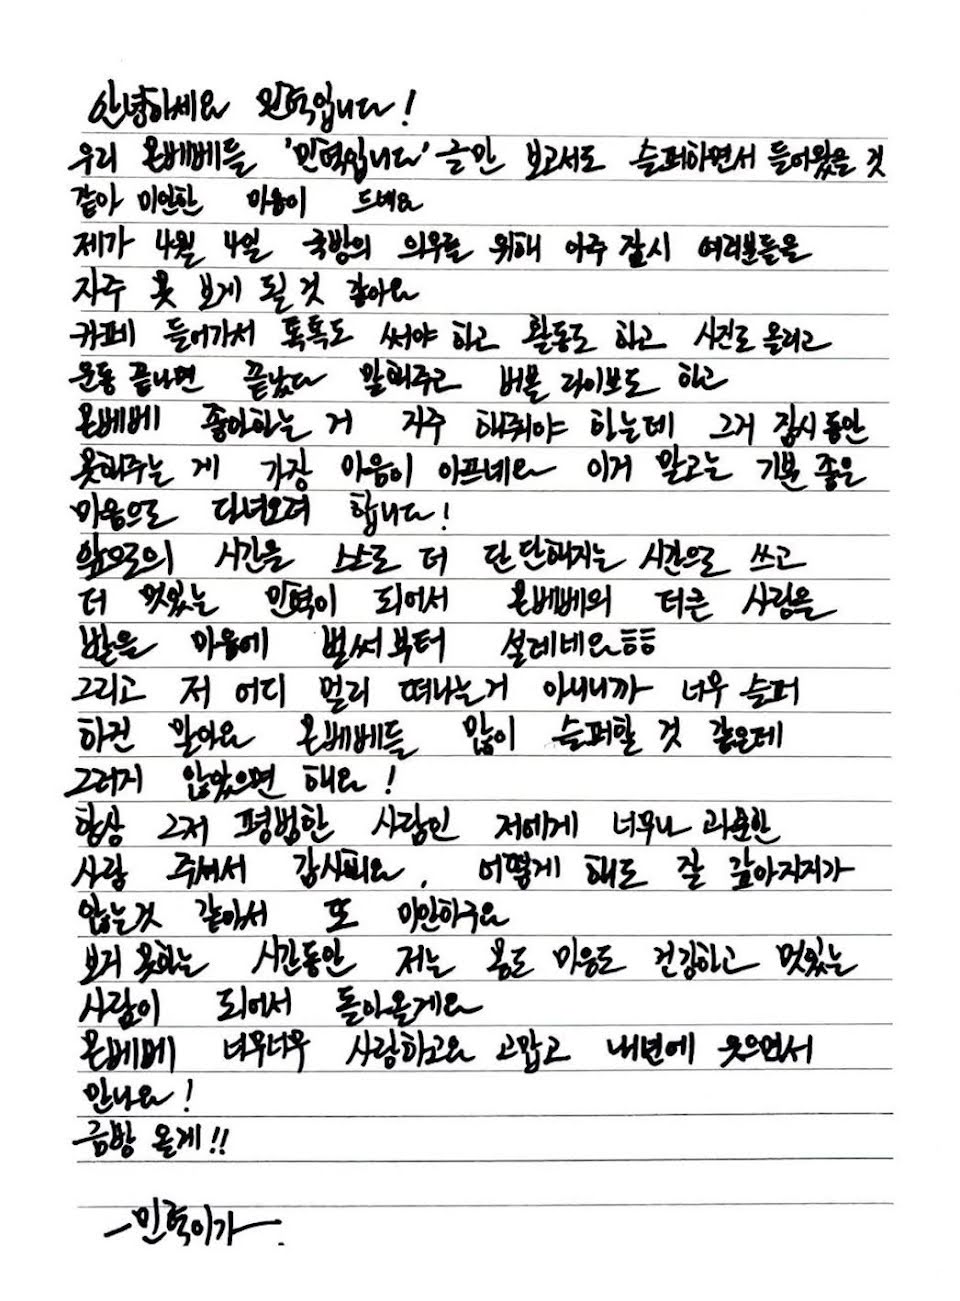 안녕하세요 민혁입니다!
우리 몬베베들 '민혁입니다' 글만 보고서도 슬퍼하면서 들어왔을 것
같아 미안한 마음이 드네요
제가 4월 4일 국방의 의무를 위해 아주 잠시 여러분들을
자주 못 보게 될 것 같아요
카페 들어가서 톡톡도 써야 하고 활동도 하고 사진도 올리고
운동 끝나면 끝났다 말해주고 버블 라이브도 하고
몬베베 좋아하는 거 자주 해줘야 하는데 그거 잠시 동안
못해주는 게 가장 마음이 아프네요 이거 말고는 기분 좋은
마음으로 다녀오려 합니다!
앞으로의 시간을 스스로 더 단단해지는 시간으로 쓰고
더 멋있는 민혁이 되어서 몬베베의 더큰 사랑을
받을 마음에 벌써부터 설레네요ㅎㅎ
그리고 저 어디 멀리 떠나는거 아니니까 너무 슬퍼
하진 말아요 몬베베들 많이 슬퍼할 것 같은데
그러지 않았으면 해요!
항상 그저 평범한 사람인 저에게 너무나 과분한
사랑 주셔서 감사해요, 어떻게 해도 잘 갚아지지가
않는것 같아서 또 미안하구요
보지 못하는 시간동안 저는 몸도 마음도 건강하고 멋있는
사람이 되어서 돌아올게요
몬베베 너무너무 사랑하고요 고맙고 내년에 웃으면서
만나요!
금방 올게!!
-민혁이가-.